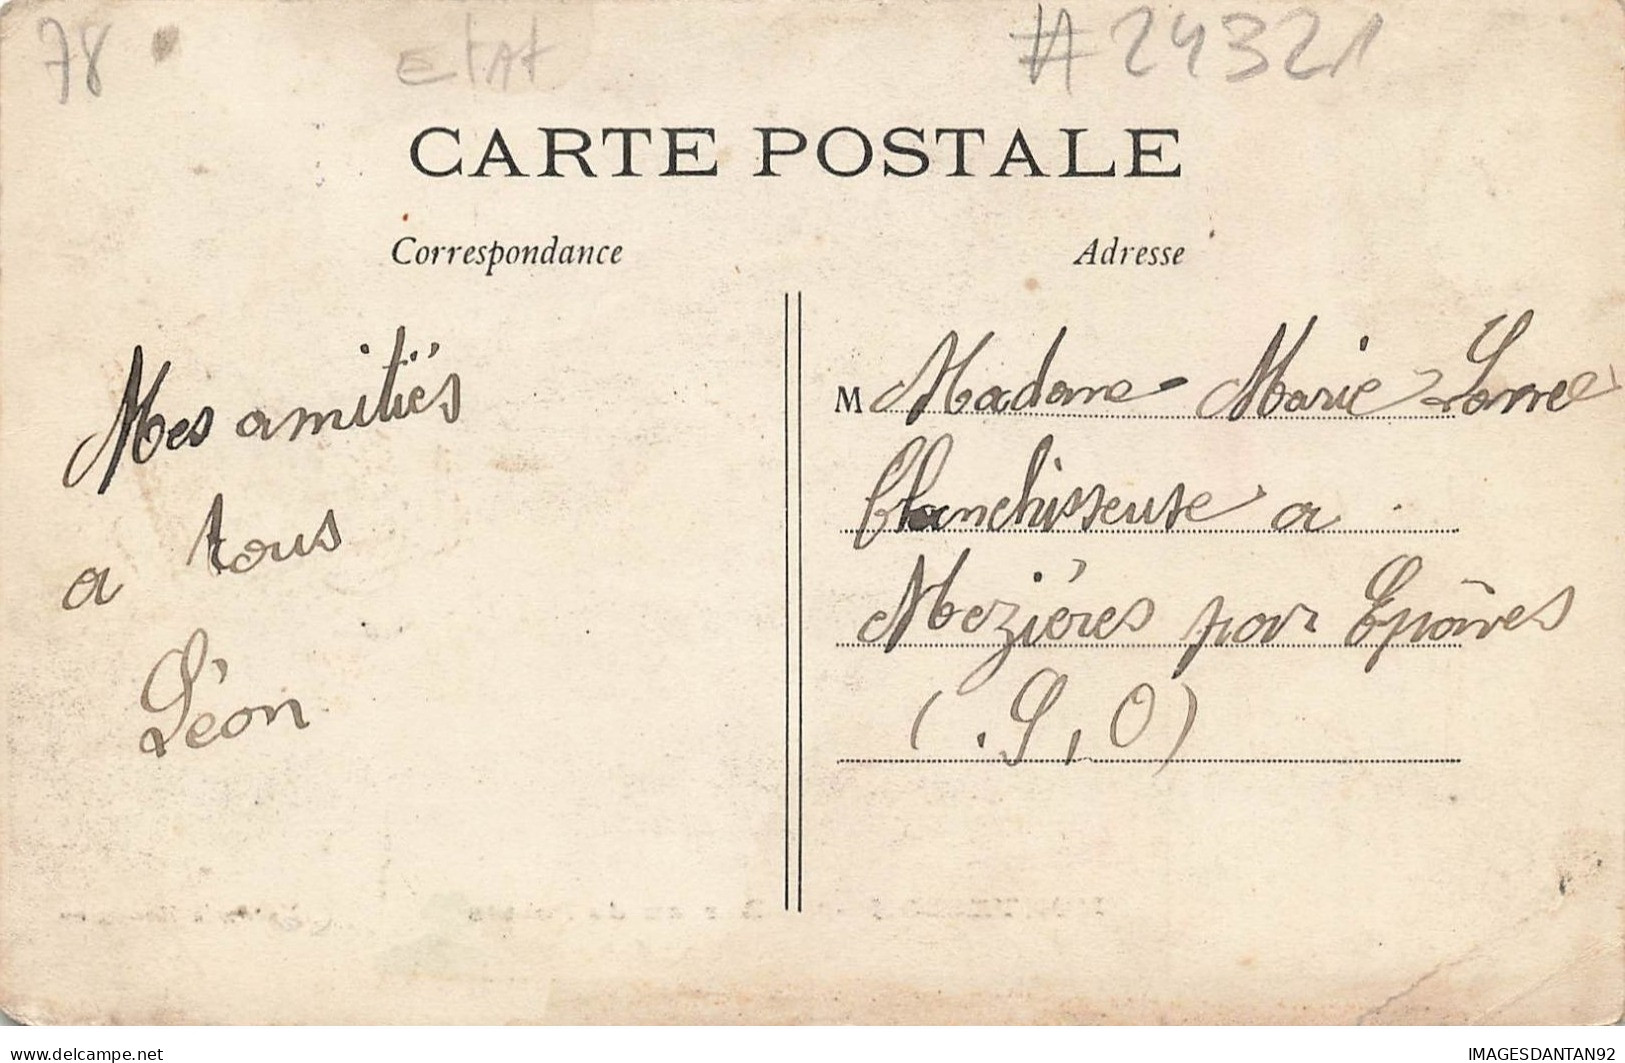 78
Etat
#24321
CARTE POSTALE
Correspondance
Mes amitiés
a tous
Léon
Adresse
M Madame Marie
Blanchisseuse a
Mezières par Epônes
(S, O)
www.delcampe.net
IMAGESDANTAN92